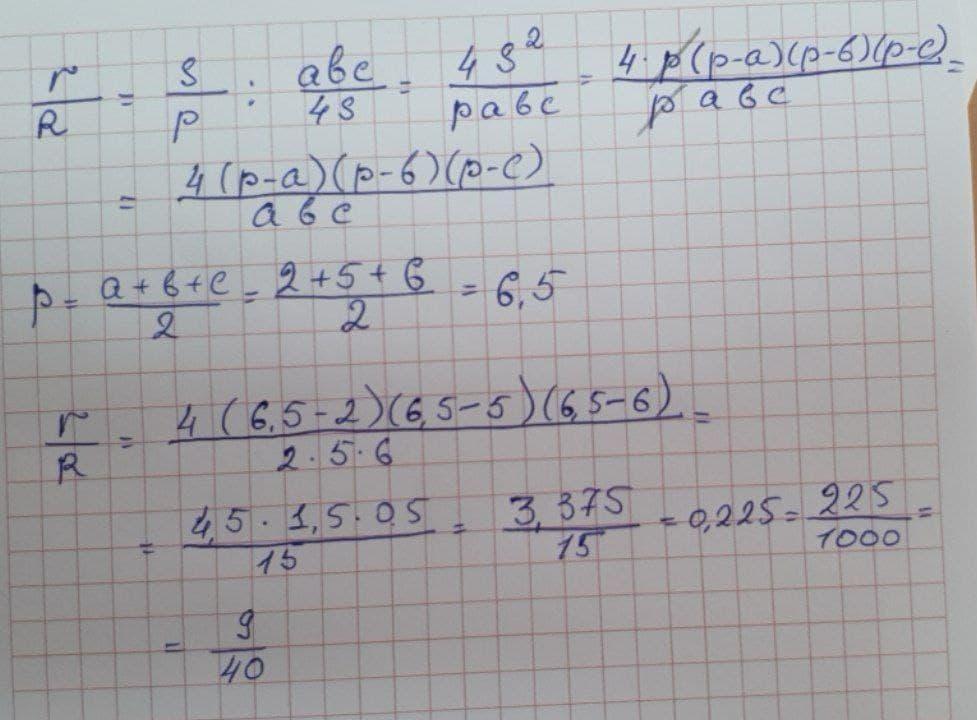 r/R = S/p : abc/4S = 4S²/pabc = 4·p(p-a)(p-b)(p-c)/pabc =
= 4(p-a)(p-b)(p-c)/abc
p = a+b+c/2 = 2+5+6/2 = 6,5
r/R = 4(6,5-2)(6,5-5)(6,5-6)/2·5·6 =
= 4,5·1,5·0,5/15 = 3,375/15 = 0,225 = 225/1000 =
= 9/40